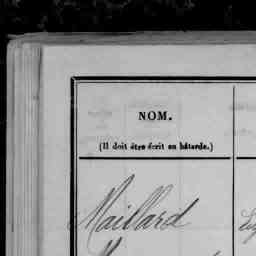 NOM.
(Il doit être écrit en bâtarde.)
Maillard